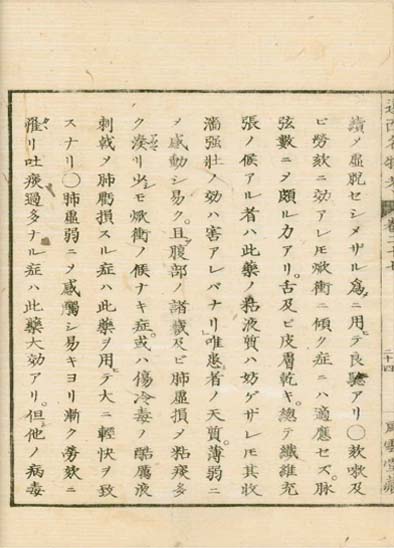 遠西名物考 卷二十七 二十四 風雲堂藏
績メ虚脱セシメザル爲ニ用テ良驗アリ〇欬嗽及
ビ勞欬ニ効アレ𪜈焮衝ニ傾ク症ニハ適應セズ。脉
弦數ニヽ頗ル力アリ。舌及ビ皮膚乾キ。總テ纖維充
張ノ候アル者ハ此藥ノ黏液質ハ妨ゲザレ𪜈其收
濇强壯ノ効ハ害アレバナリ」唯患者ノ天質。薄弱ニ
ヽ感動シ易ク。且腹部ノ諸藏及ビ肺虚損ヽ粘痰多
ク湊リ少モ焮衝ノ候ナキ症。或ハ傷冷毒ノ酷厲液
刺戟ヽ肺虧損スル症ハ此藥ヲ用テ大ニ輕快ヲ致
スナリ〇肺虚弱ニヽ感觸シ易キヨリ漸ク勞欬ニ
罹リ吐痰過多ナル症ハ此藥大効アリ。但他ノ病毒